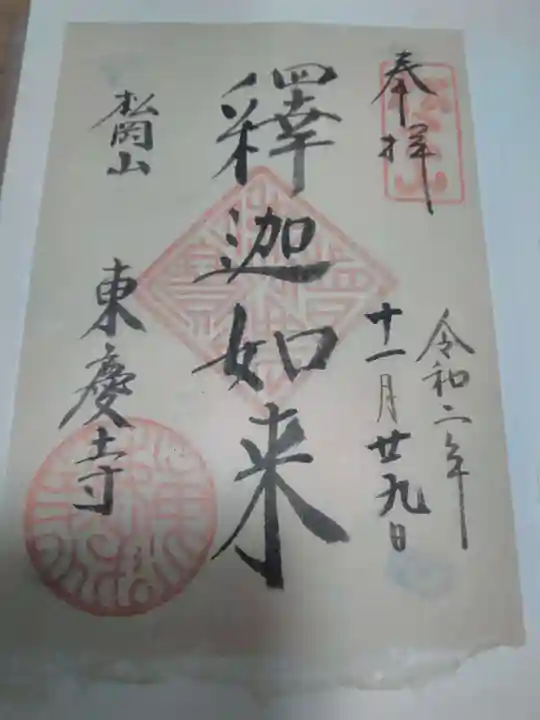 奉拝
令和二年
十一月廿九日
釋迦如来
松岡山
東慶寺